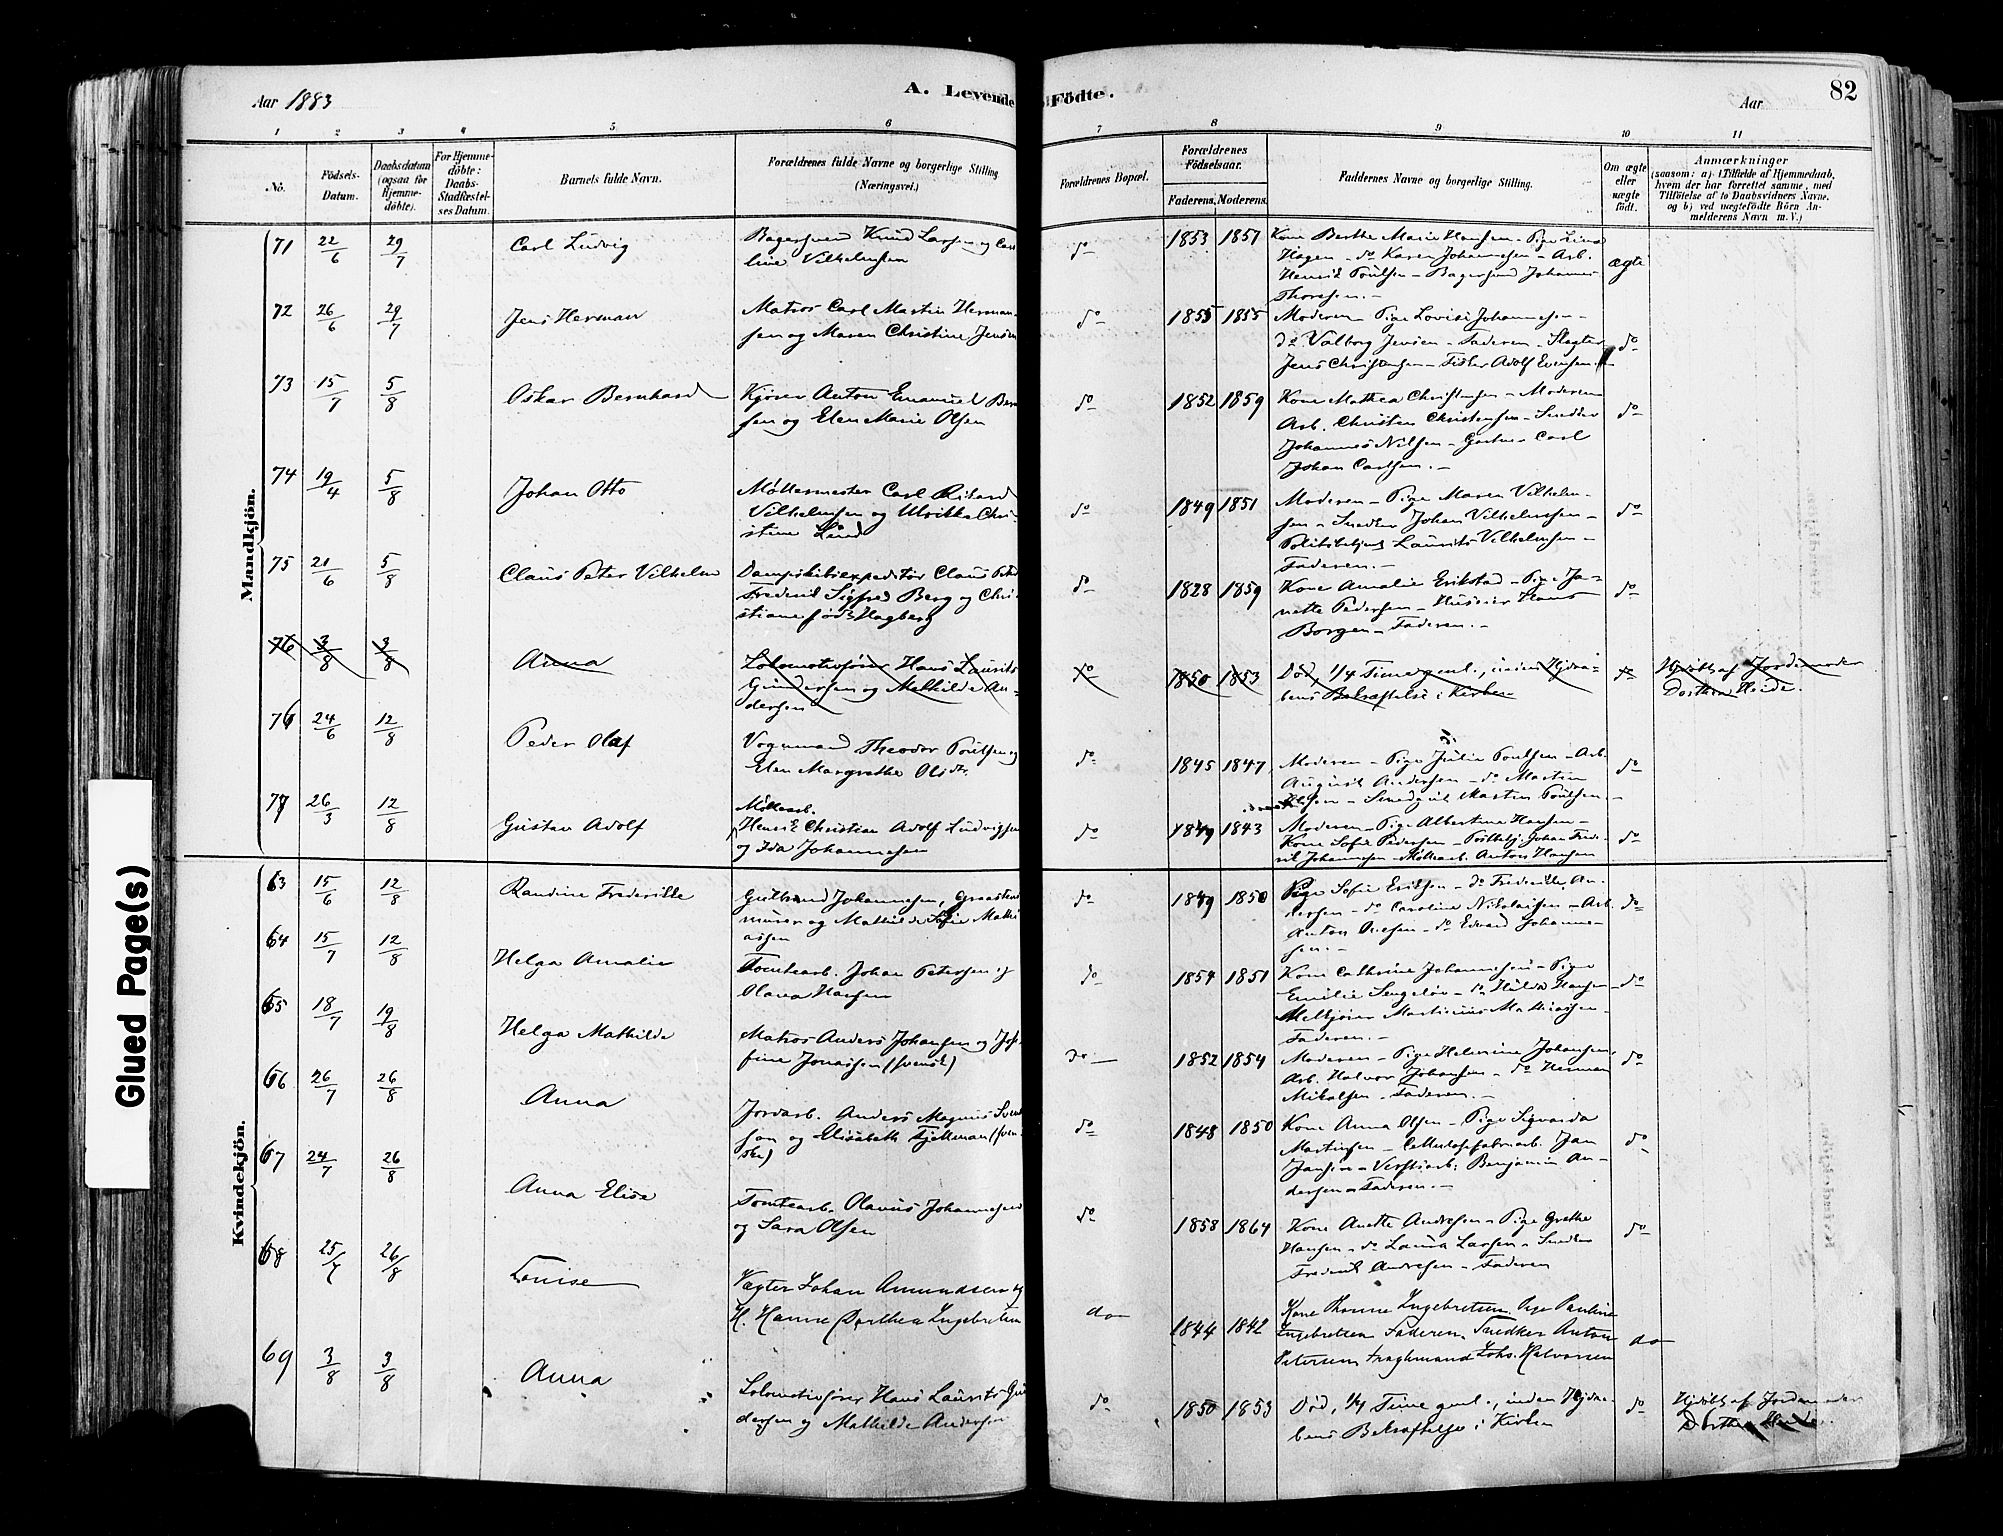 Aar 1883
A. Levende Födte.
Aar
82
1 2 3 4 5 6 7 8 9 10 11
No.
Födsels-
Datum.
Daabsdatum
(ogsaa for
Hjemme-
döbte).
For Hjemme-
döbte:
Daabs-
Stadfæstel-
ses Datum.
Barnets fulde Navn.
Forældrenes fulde Navne og borgerlige Stilling
(Næringsvei.)
Forældrenes Bopæl.
Forældrenes
Födselsaar.
Faderens. Moderens.
Faddernes Navne og borgerlige Stilling.
Om ægte
eller
uægte
födt.
Anmærkninger
(saasom: a) i Tilfælde af Hjemmedaab,
hvem der har forrettet samme, med
Tilföielse af to Daabsvidners Navne.
og b) ved uægtefödte Börn An-
melderens Navn m. V.)
Mandkjön.
71 22/6 29/7 Carl Ludvig
Bagersvend Knud Larsen og Caro-
line Vilhelmsen
do 1853 1857
Kone Berthe Marie Hansen - Pige Lina
Hagen - do Karen Johannesen - Arb.
Henrik Poulsen - Bagersvend Johannes
Thoresen. -
ægte
72 26/6 29/7 Jens Herman
Matros Carl Martin Herman-
sen og Maren Christine Jensen
do 1855 1855
Moderen - Pige Lovise Johannesen -
do Valborg Jensen - Faderen - Slagter
Jens Christensen - Fisker Adolf Evensen. -
do
73 15/7 5/8 Oskar Bernhard
Kjører Anton Emanuel Bern
sen og Elen Marie Olsen
do 1852 1859
Kone Mathea Christensen - Moderen
Arb. Christen Christensen - Snedker
Johannes Nilsen - Gartner Carl
Johan Carlsen. -
do
74 19/4 5/8 Johan Otto
Møllermester Carl Rikard
Vilhelmsen og Ulrikke Chri-
stine Lund
do 1849 1851
Moderen - Pige Maren Vilhelm-
sen - Snedker Johan Vilhelmsen -
Politibetjent Laurits Vilhelmsen -
Faderen. -
do
75 21/6 5/8 Claus Peter Vilhelm
Dampskibsexpeditør Claus Peter
Frederik Sigfred Berg og Chri-
stiane født Hagberg
do 1828 1859
Kone Amalie Erikstad - Pige Ja-
nette Pedersen - Huseier Hans
Borgen - Faderen. -
do
76 3/8 3/8 Anna
Lokomotivfører Hans Laurits
Gundersen og Mathilde An-
dersen
do 1850 1853
Død, 1/4 Time gml., inden Hjda-
bens Bekræftelse i Kirken
do
Hjdøbt af Jordemoder
Dorthea Heide.
76 24/6 12/8 Peder Olaf
Vognmand Theodor Poulsen og
Elen Margrethe Olsdtr.
do 1845 1847
Moderen - Pige Julie Poulsen - Arb.
August Andersen - do Martin
Olsen - Smedgut Martin Poulsen. -
do
77 26/3 12/8 Gustav Adolf
Møllearb.
Henrik Christian Adolf Ludvigsen
og Ida Johannesen
do 1849 1843
Moderen - Pige Albertine Hansen -
Kone Sofie Pedersen - Postbetj. Johan Frede-
rik Johannesen - Møllearb. Anton Hansen
do
Kvindekjön.
63 15/6 12/8 Randine Frederikke
Gulbrand Johannesen, Graasten
murer og Mathilde Sofie Mathi
assen
do 1849 1850
Pige Sofie Eriksen - do Frederikke An-
dersen - do Caroline Nikolaisen - Arb.
Anton Olesen - do Edvard Johanne-
sen. -
do
64 15/7 12/8 Helga Amalie
Tomtearb. Johan Petersen og
Olava Hansen
do 1854 1851
Kone Cathrine Johannesen - Pige
Emilie Sengeløv - do Hilda Hansen -
Melkjører Martinius Mathiassen -
Faderen. -
do
65 18/7 19/8 Helga Mathilde
Matros Anders Johansen og Jose
fine Jonassen (svensk)
do - 1852 1854
Moderen - Pige Helmine Johansen,
Arb. Halvor Johansen - do Herman
Mikalsen - Faderen. -
do
66 26/7 26/8 Anna
Jordarb. Anders Magnus Svend
son og Elisabeth Fjellman (sven-
ske)
do 1848 1850
Kone Anna Olsen - Pige Sigvarda
Martinsen - Cellulosefabriarb. Jan
Jansen - Verftsarb. Benjamin An-
dersen - Faderen. -
do
67 24/7 26/8 Anna Elise
Tomtearb. Olavus Johannesen
og Sara Olsen
do 1858 1864
Kone Anette Andresen - Pige Grethe
Hansen - do Laura Larsen - Snedker
Frederik Andresen - Faderen
do
68 25/7 26/8 Louise
Vægter Johan Amundsen og
H. Hanne Dorthea Ingebretsen
do 1844 1842
Kone Thonne Ingebretsen. Pige Pauline
Ingebretsen Faderen. Snedker Anton
Petersen Fragtmand Johs. Halvorsen
do
69 3/8 3/8 Anna
Lokomotivfører Hans Laurits Gun
dersen og Mathilde Andersen
do 1850 1853
Død, 1/4 Time gml., inden Hjda-
bens Bekræftelse i Kirken
do
Hjdøbt af Jordemoder
Dorthea Heide.
Glued Page(s)